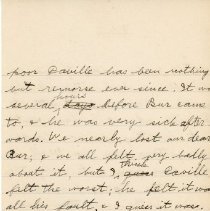 poor Daville has been nothing
but remorse ever since. It was
hours
several, days before Bur came
to, & he was very sick after
words. We nearly lost our dear
Bur, & we all felt very badly
about it, but I guess Daville
felt the worst, he felt it was
all his fault, & I guess it was.